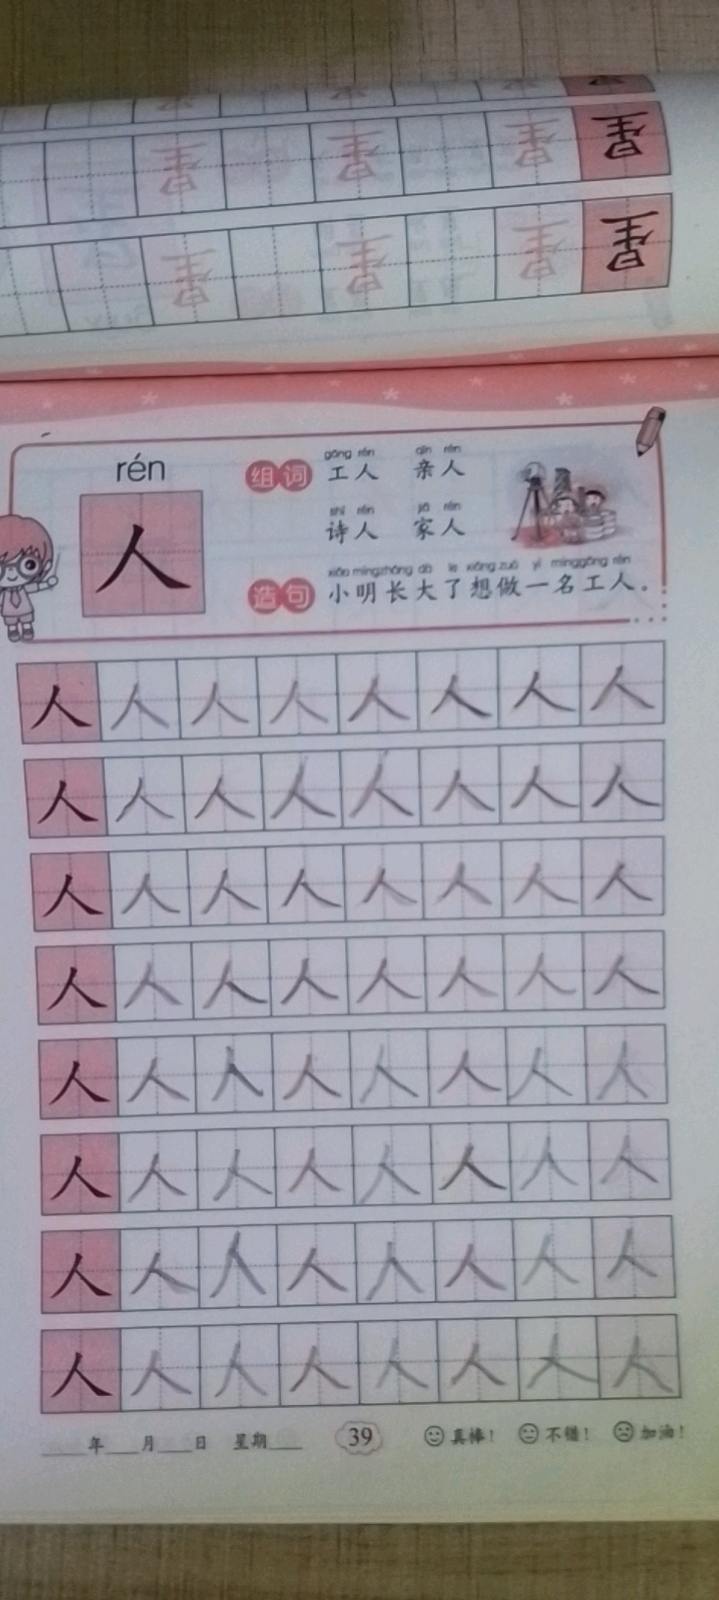 星 星 星 星
星 星 星 星
rén
人
组词
gōng rén qīn rén
工人 亲人
shī rén jiā rén
诗人 家人
造句
xiǎo míng zhǎng dà le xiǎng zuò yì míng gōng rén
小明长大了想做一名工人。
人 人 人 人 人 人 人 人
人 人 人 人 人 人 人 人
人 人 人 人 人 人 人 人
人 人 人 人 人 人 人 人
人 人 人 人 人 人 人 人
人 人 人 人 人 人 人 人
人 人 人 人 人 人 人 人
人 人 人 人 人 人 人 人
____年____月____日 星期____ 39 真棒! 不错! 加油!